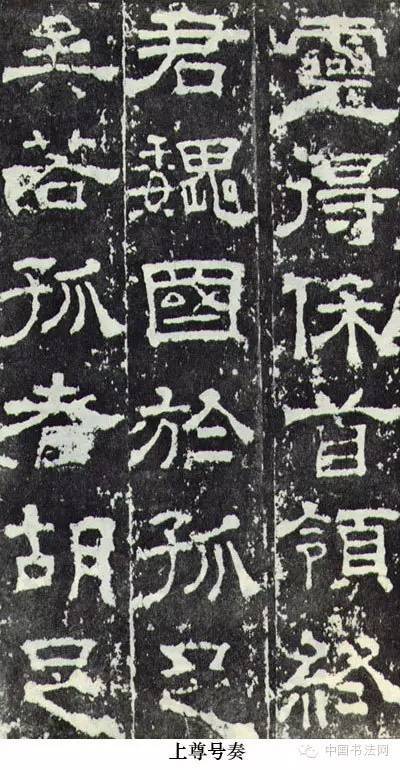 靈得保首領終
君魏國於孤足
矣若孤者胡足
上尊号奏
中国书法网